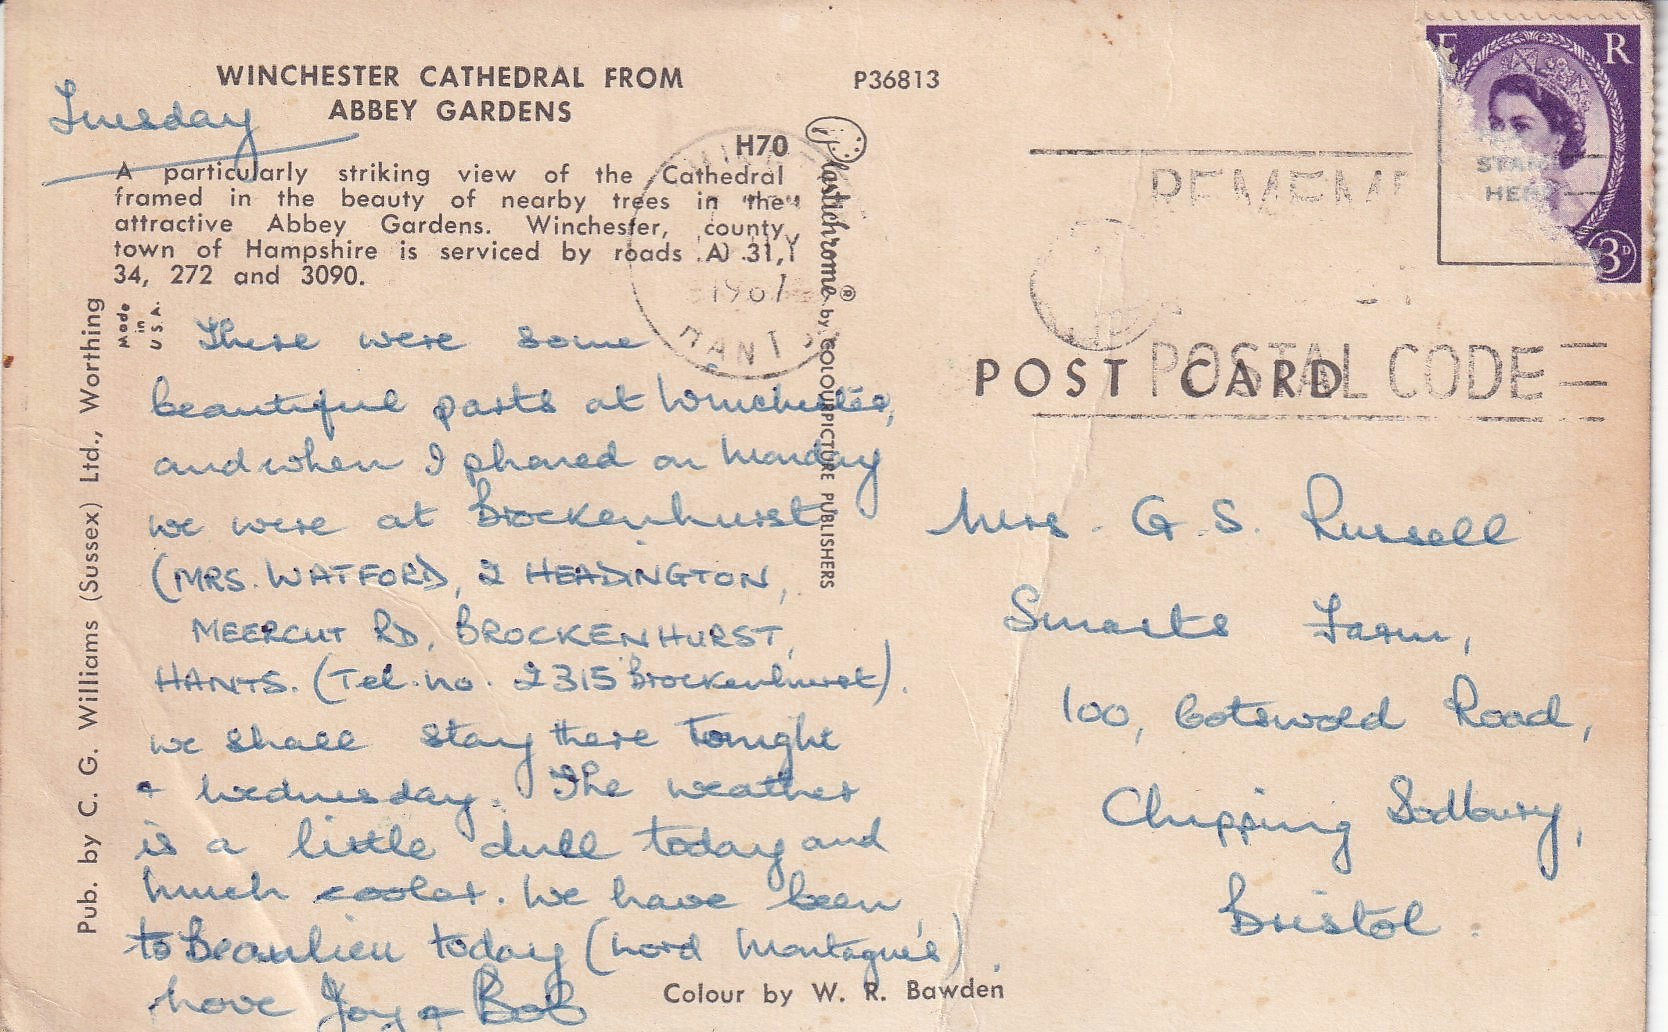 WINCHESTER CATHEDRAL FROM
ABBEY GARDENS
P36813
Tuesday
H70
A particularly striking view of the Cathedral
framed in the beauty of nearby trees in the
attractive Abbey Gardens. Winchester, county
town of Hampshire is serviced by roads A) 31,
34, 272 and 3090.
Made
in
U.S.A.
Pub. by C. G. Williams (Sussex) Ltd., Worthing
Plastichrome ® by COLOURPICTURE PUBLISHERS
There were some
beautiful parts at Winchester,
and when I phoned on Monday
we were at Brockenhurst
(MRS. WATFORD, 2 HEADINGTON,
MEERCUT RD, BROCKENHURST,
HANTS. (Tel. no. 2315 Brockenhurst).
we shall stay there tonight
+ Wednesday. The weather
is a little dull today and
much cooler. We have been
to Beaulieu today (Lord Montague's).
Love Joy + Bob
Colour by W. R. Bawden
E R
STAMP
HERE
3D
REMEMB
POSTAL CODE
1967
HANTS
POST CARD
Mrs. G. S. Russell
Smarts Farm,
100, Cotswold Road,
Chipping Sodbury,
Bristol.